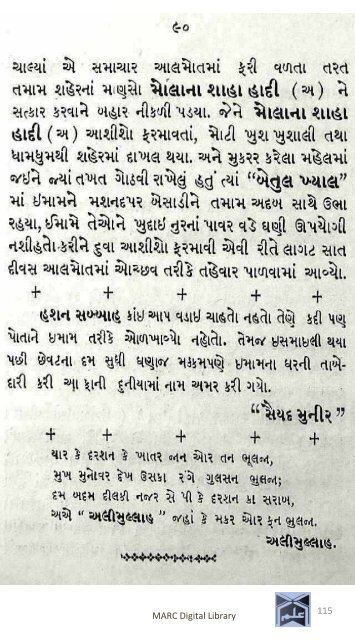 ૯૦
ચાલ્યાં એ સમાચાર આલમોતમાં ફરી વળતા તરત
તમામ શહેરનાં માણસો મોલાના શાહા હાદી (અ) ને
સત્કાર કરવાને બહાર નીકળી પડયા. જેને મોલાના શાહા
હાદી (અ) આશીશો ફરમાવતાં, મોટી ખુશ ખુશાલી તથા
ધામધુમથી શહેરમાં દાખલ થયા. અને મુકરર કરેલા મહેલમાં
જઈને જ્યાં તખત ગોઠવી રાખેલું હતું ત્યાં “બેતુલ ખ્યાલ”
માં ઈમામને મશનદપર બેસાડીને તમામ અદબ સાથે ઉભા
રહયા, ઈમામે તેઓને ખુદાઈ નુરનાં પાવર વડે ઘણી ઊપયોગી
નશીહતો કરીને દુવા આશીશો ફરમાવી એવી રીતે લાગટ સાત
દીવસ આલમોતમાં ઓચ્છવ તરીકે તહેવાર પાળવામાં આવ્યો.
+ + + + +
હશન સબ્બાહ કાંઇ આપ વડાઇ ચાહતો નહતો તેણે કદી પણ
પોતાને ઇમામ તરીકે ઓળખાવ્યો નહોતો. તેમજ ઇસમાઇલી થયા
પછી છેવટના દમ સુધી ઘણાજ મક્કમપણે ઇમામના ઘરની તાબે-
દારી કરી આ ફાની દુનીયામાં નામ અમર કરી ગયો.
“સૈયદ મુનીર”
+ + + + +
યાર કે દરશન કે ખાતર જાન ઓર તન ભુલજા,
મુખ મુનોવર દેખ ઉસકા રંગે ગુલસન ભુલજા;
દમ બદમ દીલકી નજર સે પી કે દરશન કા સરાબ,
અએ “અલીમુલ્લાહ” જહાં કે મકર ઓર ફન ભુલજા.
અલીમુલ્લાહ.
MARC Digital Library
115